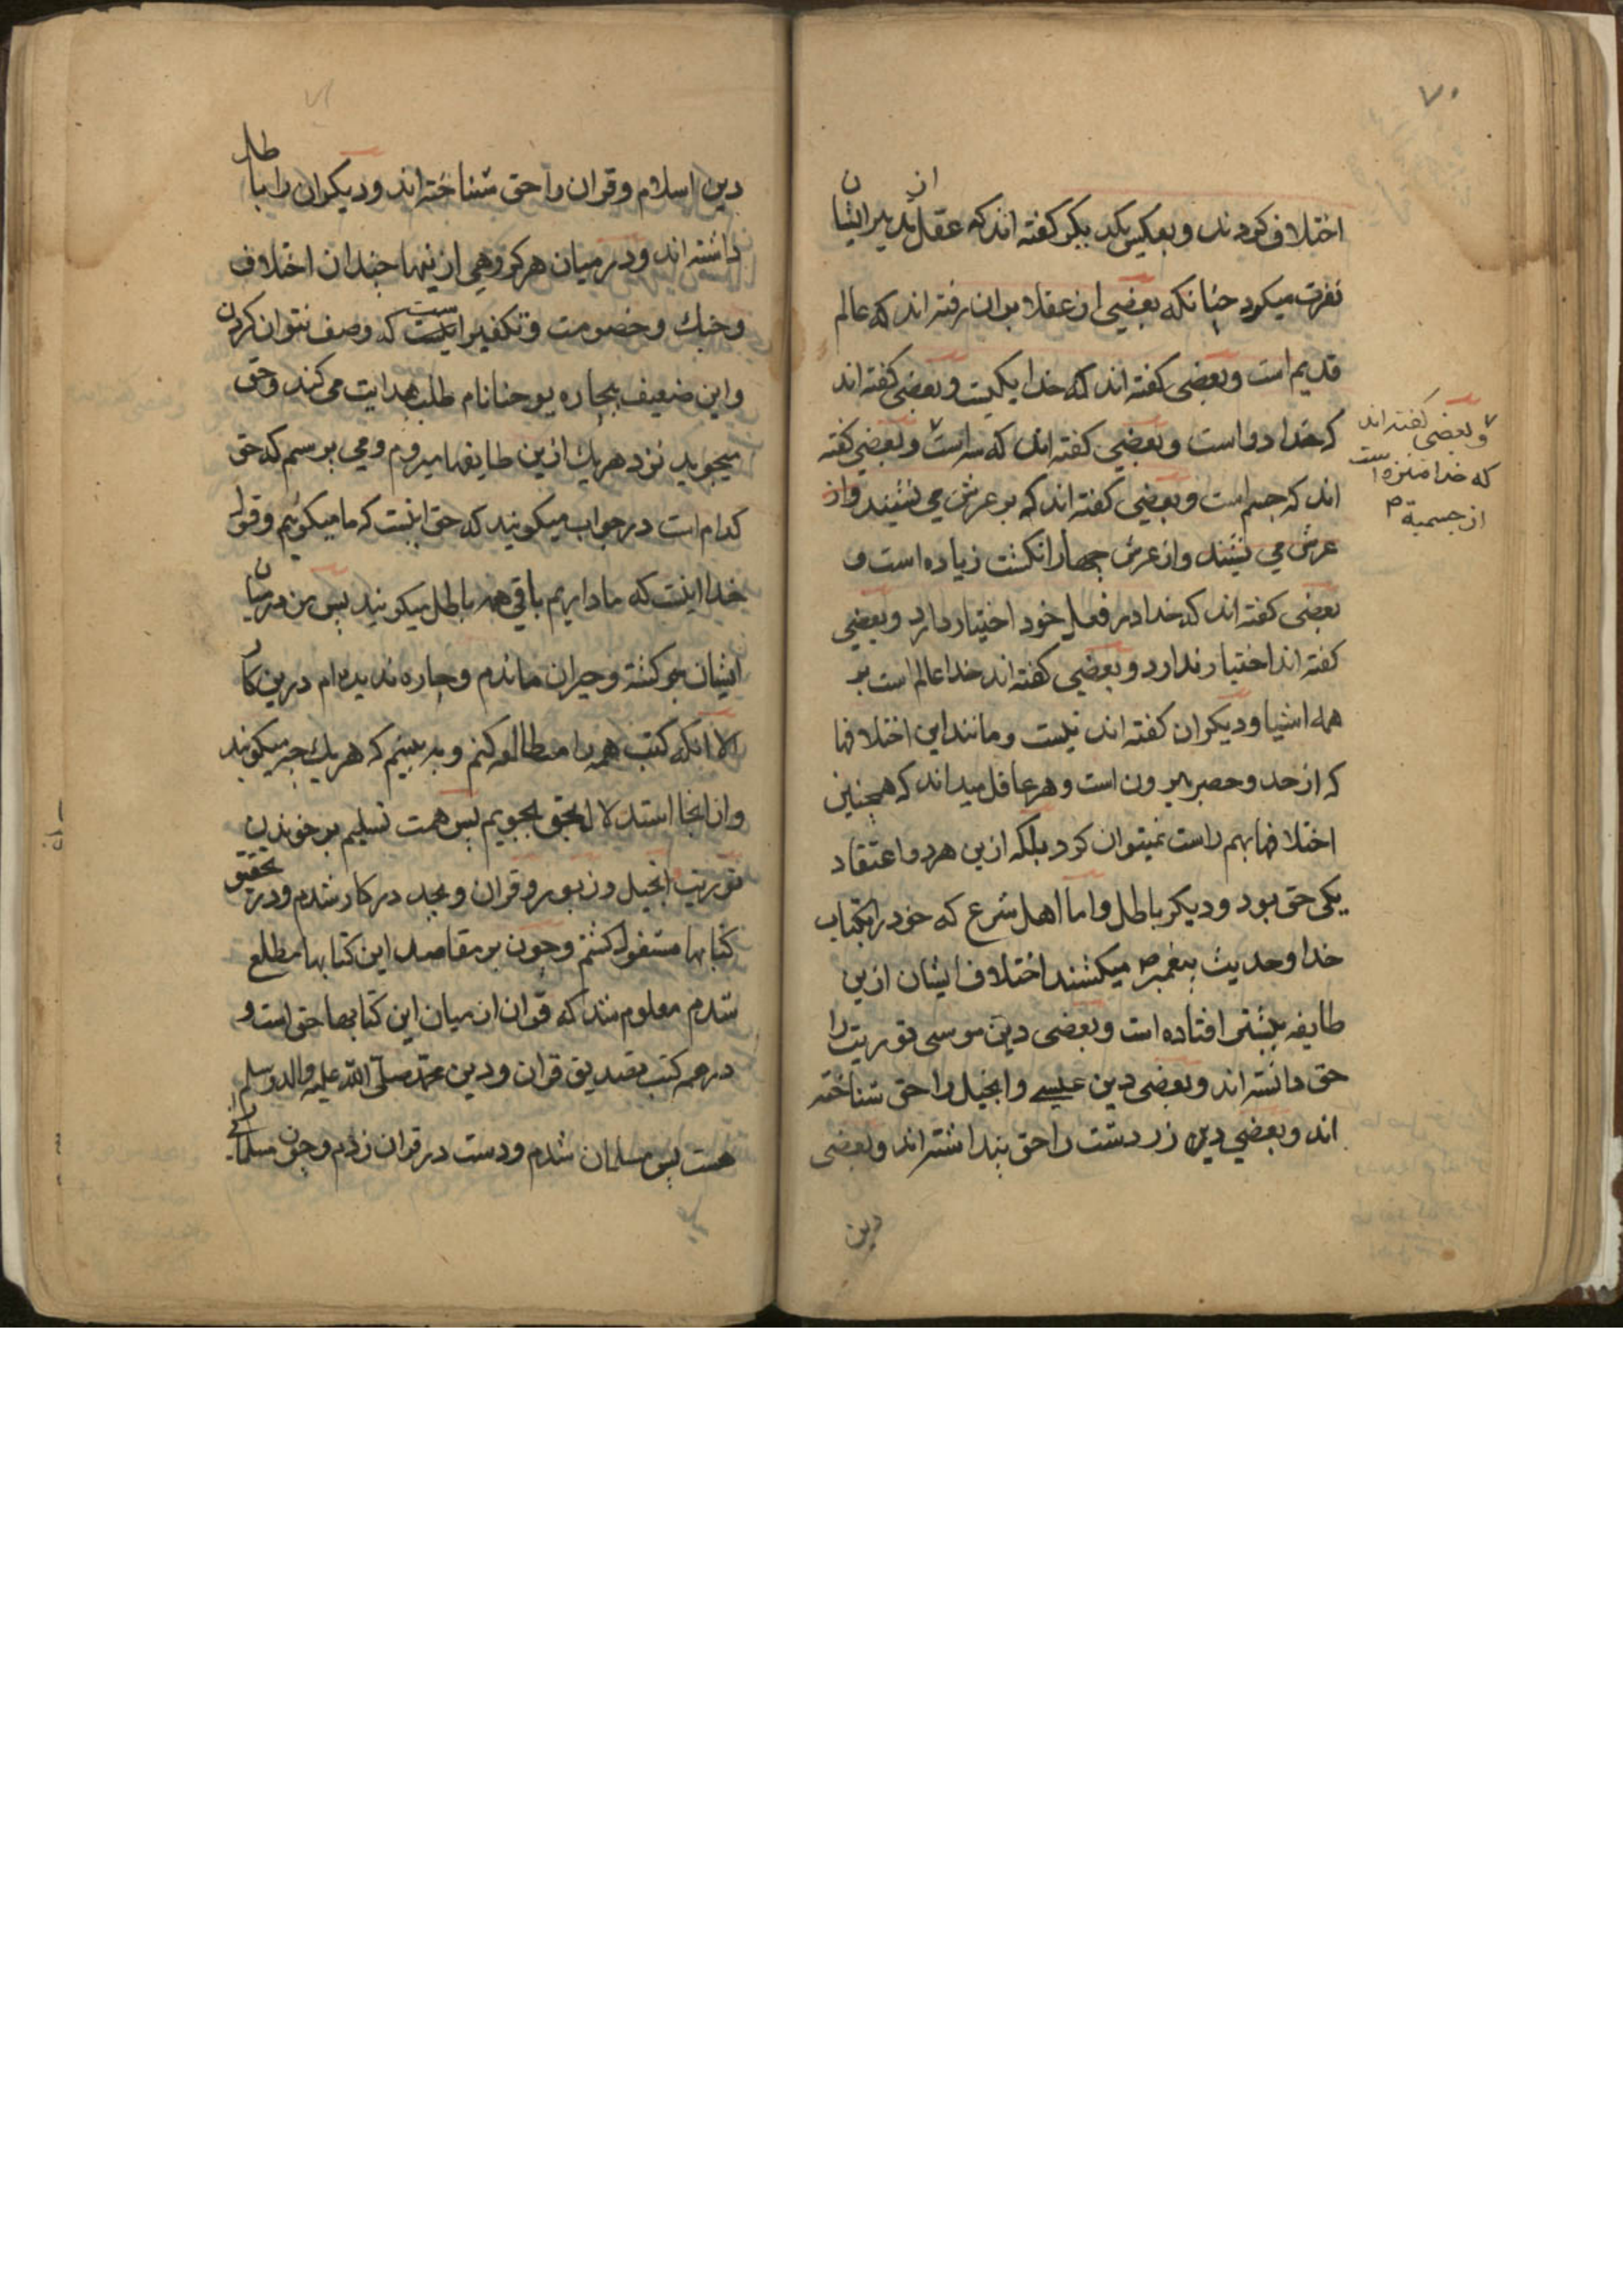 ۷۰
اختلاف کردند و بعکس یکدیکر کفته اند که عقل از تدبیر ایشان
نفرت میکرد چنانکه بعضی از عقلا بران رفته اند که عالم
قدیم است و بعضی کفته اند که خدا یکیست و بعضی کفته اند
که خدا دو است و بعضی کفته اند که سه است و بعضی کفته
اند که جسم است و بعضی کفته اند که بر عرش می نشیند و از
عرش می نشیند و از عرش چهار انکشت زیاده است و
بعضی کفته اند که خدا در فعل خود اختیار دارد و بعضی
کفته اند اختیار ندارد و بعضی کفته اند خدا عالم است بر
همه اشیا و دیکران کفته اند نیست و مانند این اختلافها
که از حد و حصر بیرون است و هر عاقل میداند که همچنین
اختلافها بهم راست نمیتوان کرد بلکه ازین هر دو اعتقاد
یکی حق بود و دیکر باطل و اما اهل شرع که خود را بکتاب
خدا و حدیث پیغمبر ص میکشند اختلاف ایشان ازین
طایفه بیشتر افتاده است و بعضی دین موسی توریت را
حق دانسته اند و بعضی دین عیسی و انجیل را حق شناخته
اند و بعضی دین زردشت را حق پنداشته اند و بعضی
دین
و بعضی کفته اند
که خدا منزه است
از جسمیة ص
۷۱
دین اسلام و قران را حق شناخته اند و دیکران را باطل
داشته اند و در میان هر کروهی ازینها چندان اختلاف
و جنك و خصومت و تکفیر است که وصف نتوان کردن
و این ضعیف بیچاره یوحنا نام طلب هدایت می کند و حق
میجوید نزد هریك ازین طایفها میروم و می پرسم که حق
کدام است در جواب میکویند که حق اینست که ما میکوئیم و قول
خدا اینست که ما داریم باقی همه باطل میکویند پس من در میان
ایشان سر کشته و حیران ماندم و چاره ندیده ام درین کار
الا انکه کتب همه را مطالعه کنم و به بینم که هریك چه میکویند
و از انجا استدلال بحق بجویم پس همت تسلیم بر خوندن
توریت و انجیل و زبور و قران و بجد در کار شدم و در تحقیق
کتابها مشغول کشتم و چون بر مقاصد این کتابها مطلع
شدم معلوم شد که قران از میان این کتابها حق است و
در همه کتب تصدیق قران و دین محمد صلی الله علیه واله وسلم
هست پس مسلمان شدم و دست در قران زدم و چون مسلمانی